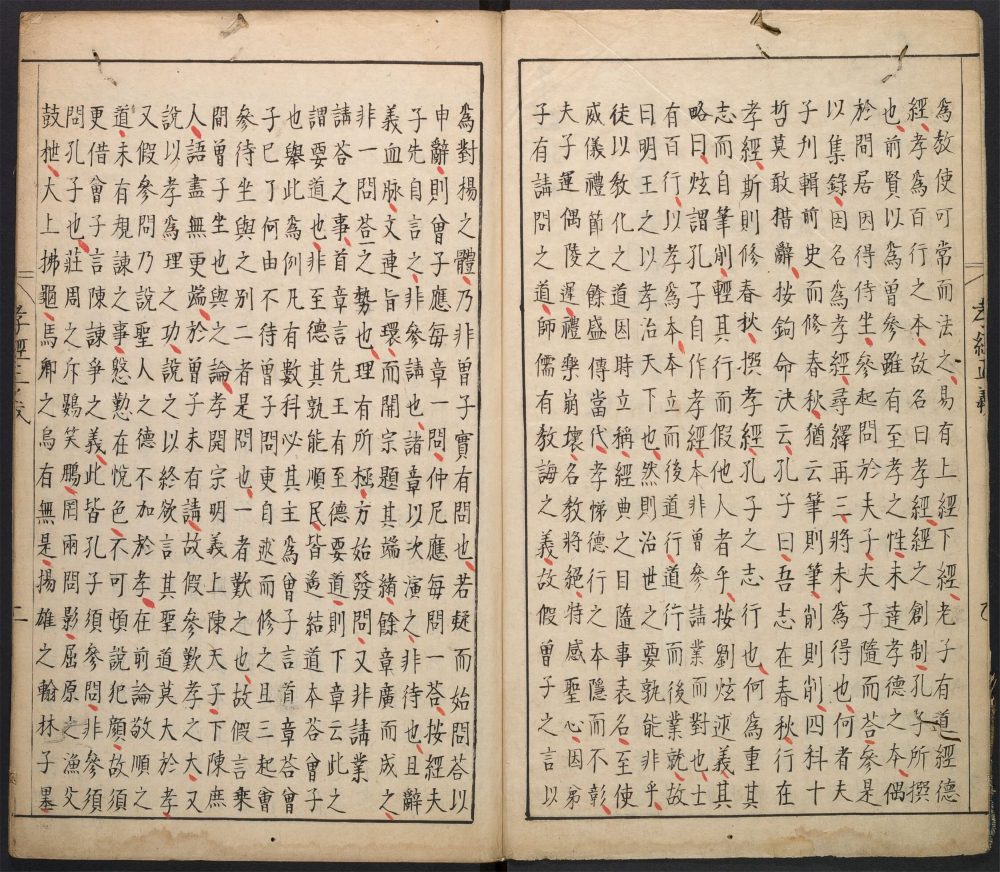 孝經正義
爲教使可常而法之易有上經下經老子有道經德
經孝爲百行之本故名曰孝經經之創制孔子所撰
也前賢以爲曾參雖有至孝之性未達孝德之本偶
於間居因得侍坐參起問於夫子夫子隨而荅參是
以集錄因名爲孝經尋繹再三將未爲得也何者夫
子刋輯前史而修春秋猶云筆則筆削則削四科十
哲莫敢措辭按鉤命決云孔子曰吾志在春秋行在
孝經斯則修春秋撰孝經孔子之志行也何爲重其
志而自筆削輕其行而假他人者乎按劉炫述義其
略曰炫謂孔子自作孝經本非曾參請業而對也士
有百行以孝爲本本立而後道行道行而後業就故
曰明王之以孝治天下也然則治世之要孰能非乎
徒以教化之道因時立稱經典之目隨事表名至使
威儀禮節之餘盛傳當代孝悌德行之本隱而不彰
夫子運偶陵遲禮樂崩壞名教將絕特感聖心因弟
子有請問之道師儒有教誨之義故假曾子之言以
爲對揚之體乃非曾子實有問也若疑而始問荅以
申辭則曾子應每章一問仲尼應每問一荅按經夫
子先自言之非參請也諸章以次演之非待也且辭
義血脉文連旨環而開宗題其端緒餘章廣而成之
非一問荅之勢也理有所極方始發問又非請業
請荅之事首章言先王有至德要道則下章云此之
謂要道也非至德其孰能順民皆遙結道本荅曾子
也舉此爲例凡有數科必其主爲曾子言首章荅曾
子已了何由不待曾子問更自述而修之且三起曾
參待坐與之別二者是問也一者歎之也故假言乗
間曾子坐也與之論孝開宗明義上陳天子下陳庶
人語盡無更端於曾子未有請故假參歎孝之大又
說以孝爲理之功說之以終欲言其聖道莫大於孝
又假參問乃說聖人之德不加於孝在前論敬順之
道未有規諫之事慇懃在悅色不可頓說犯顏故須
更借曾子言陳諫爭之義此皆孔子須參問非參須
問孔子也莊周之斥鷃笑鵬罔兩問影屈原之漁父
鼓枻大上拂龜馬卿之烏有無是揚雄之翰林子墨
孝經正義 二